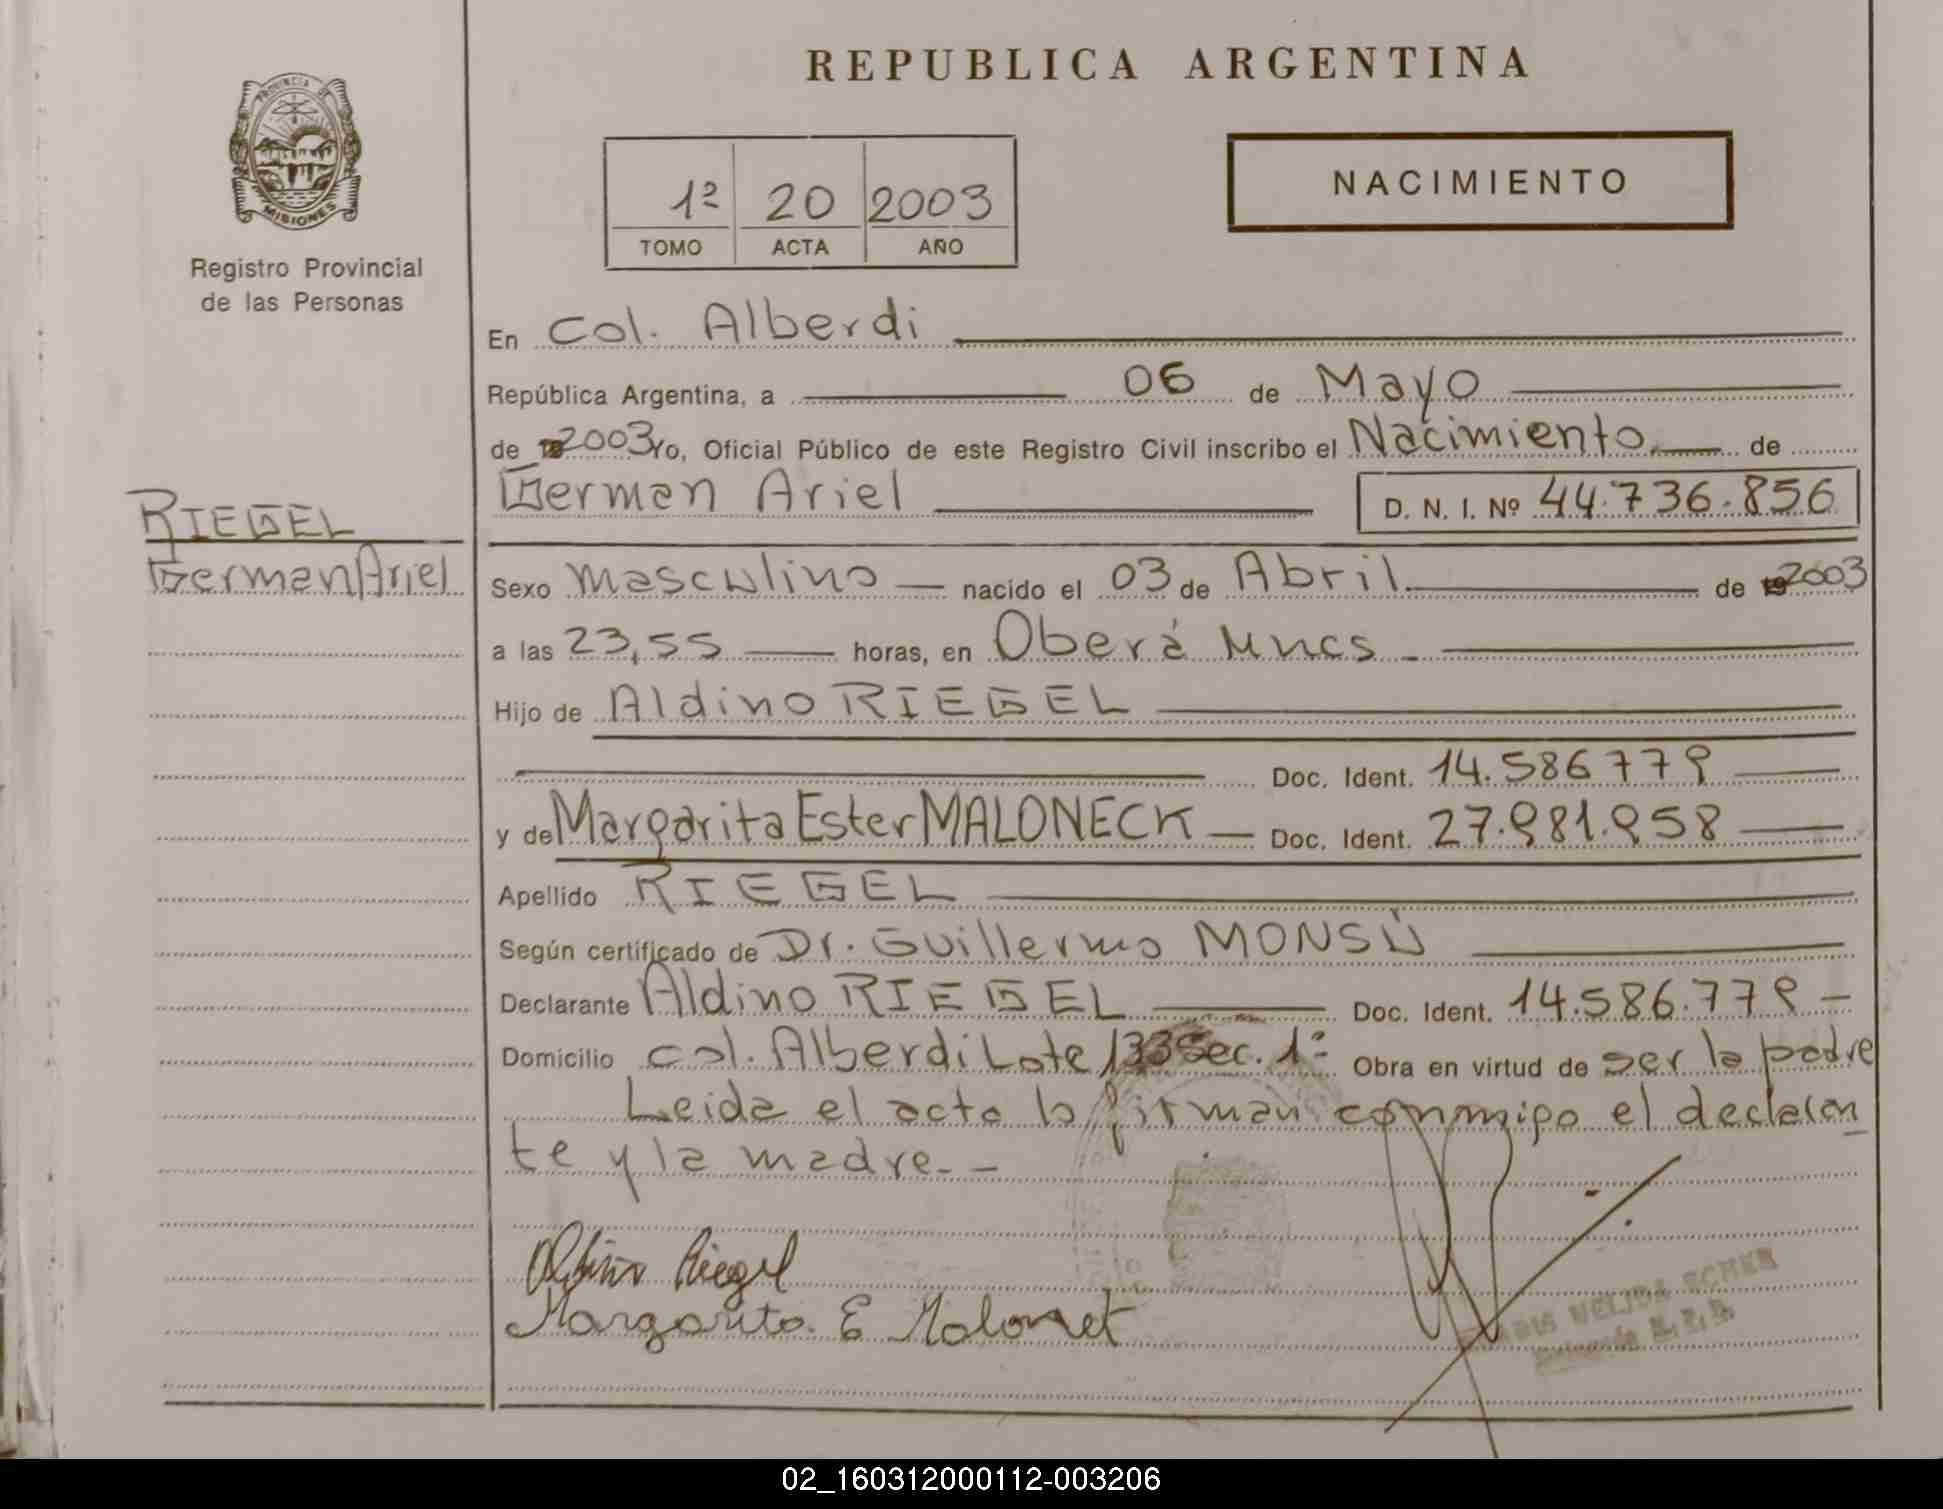 REPUBLICA ARGENTINA
PROVINCIA DE MISIONES
Registro Provincial
de las Personas
1º 20 2003
TOMO ACTA AÑO
NACIMIENTO
En Col. Alberdi
República Argentina, a 06 de Mayo
de 2003 Yo, Oficial Público de este Registro Civil inscribo el Nacimiento de
German Ariel D. N. I. Nº 44.736.856
RIEGEL
German Ariel
Sexo masculino nacido el 03 de Abril de 2003
a las 23,55 horas, en Oberá Mncs
Hijo de Aldino RIEGEL
Doc. Ident. 14.586779
y de Margarita Ester MALONECK Doc. Ident. 27.981.958
Apellido RIEGEL
Según certificado de Dr. Guillermo MONSÚ
Declarante Aldino RIEGEL Doc. Ident. 14.586.779
Domicilio col. Alberdi Lote 133 Sec. 1º Obra en virtud de ser la padre
Leida el acta la firman conmigo el declaran
te y la madre.
Riegel
Margarita E Malonet
NELIDA
02_160312000112-003206